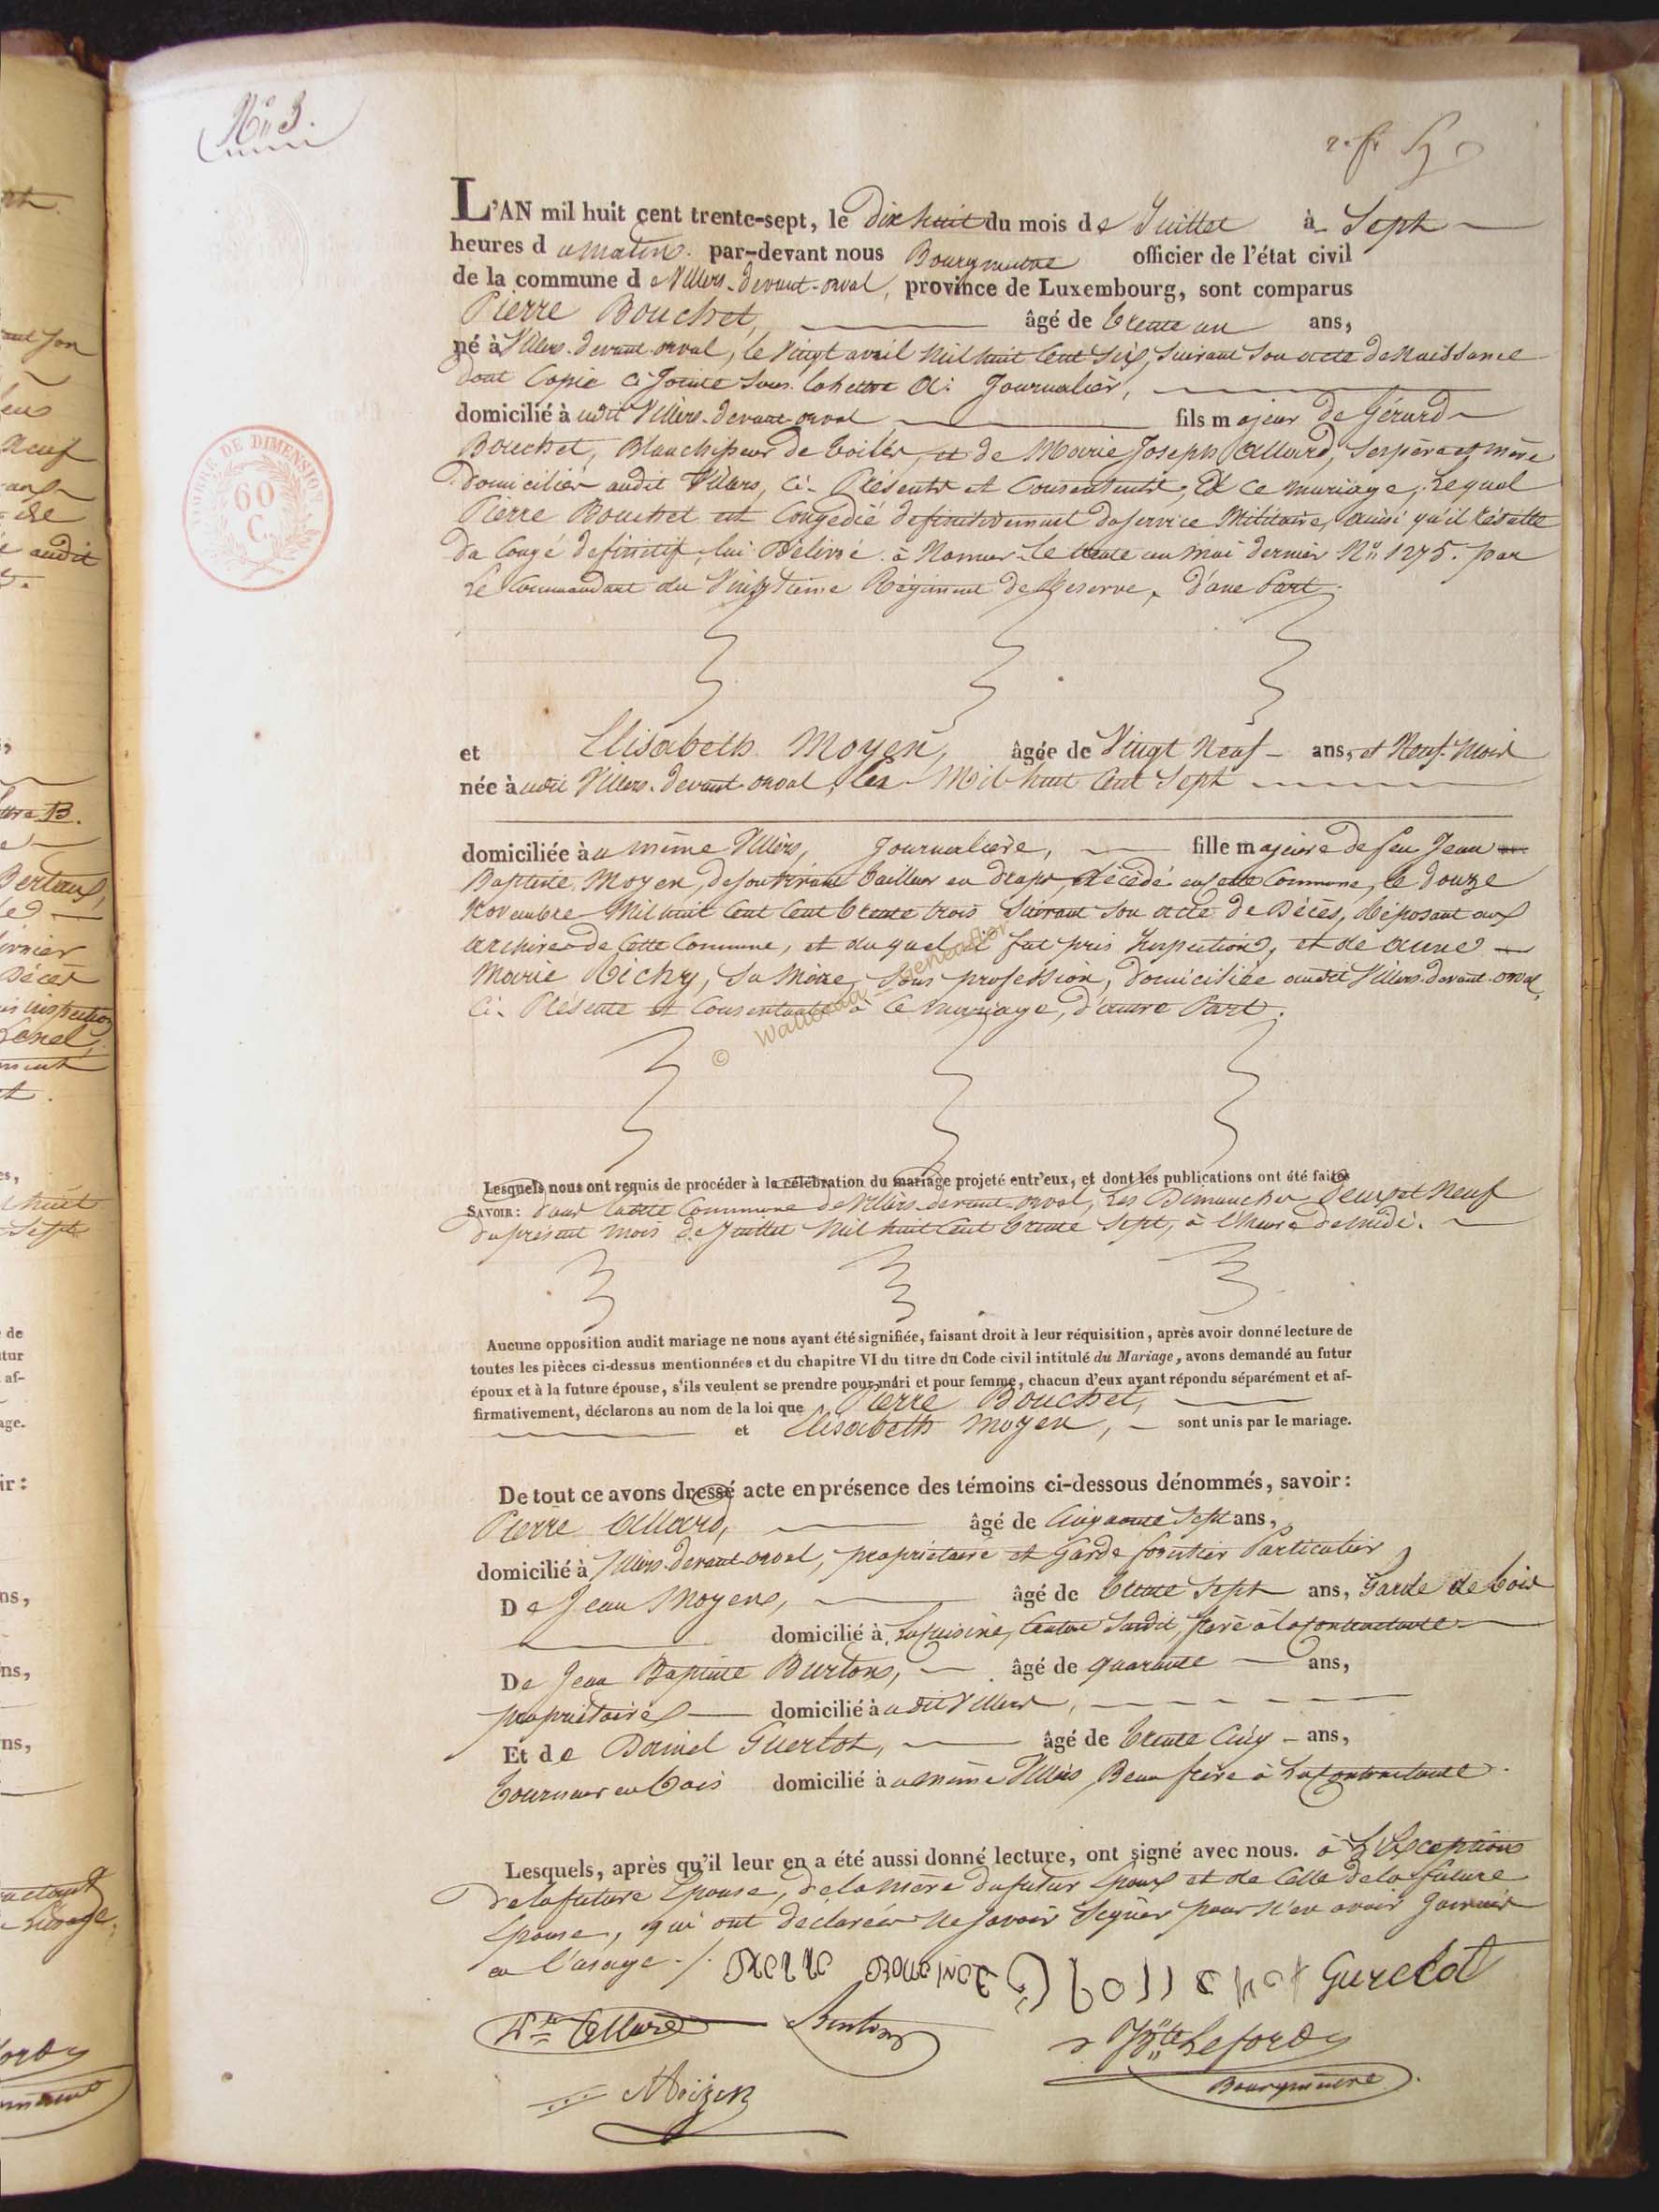 N° 3.
2. fr 
L'AN mil huit cent trente-sept, le dix huit du mois de Juillet à Sept
heures du matin. par-devant nous Bourgmestre officier de l'état civil
de la commune de Villers-devant-orval, province de Luxembourg, sont comparus
Pierre Bouchet, âgé de trente un ans,
né à Villers-devant-orval, le vingt avril mil huit cent six, suivant son acte de Naissance
dont Copie ci-Jointe sous la lettre A: Journalier,
domicilié à udit Villers-devant-orval fils majeur de Gérard
Bouchet, Blanchisseur de toiles, et de Marie Joseph Allard, ses père et mère
Domiciliés audit Villers, ci-Présents et Consentents, à ce mariage, Lequel
Pierre Bouchet est Congédié definitivement du service Militaire, ainsi qu'il résulte
du Congé definitif, lui Délivré à Namur Le trente un mai dernier N° 1275. par
Le Commandant du Vingtième Régiment de Réserve, d'une Part.
et Elisabeth Moyen, âgée de Vingt Neuf ans, et Neuf Mois
née à udit Villers-devant-orval, les Mil huit Cent Sept
domiciliée à u même Villers, Journalière, fille majeure de feu Jean
Baptiste Moyen, de son vivant tailleur en draps, décédé en cette Commune, le douze
Novembre Mil huit Cent Cent trente trois suivant son acte de Décès, déposant aux
archives de Cette Commune, et duquel il fut pris Inspection, et de Anne
Marie Richy, Sa Mère, sans profession, domiciliée audit Villers-devant-orval,
Ci-Présente et Consentante à Ce mariage, d'autre Part.
© Wallonia - Geneafior
Lesquels nous ont requis de procéder à la célébration du mariage projeté entr'eux, et dont les publications ont été faites
SAVOIR: dans ladite Commune de Villers-devant-orval, Les Dimanches deux et Neuf
du présent mois de Juillet Mil huit Cent trente Sept, à l'heure de midi.
Aucune opposition audit mariage ne nous ayant été signifiée, faisant droit à leur réquisition, après avoir donné lecture de
toutes les pièces ci-dessus mentionnées et du chapitre VI du titre du Code civil intitulé du Mariage, avons demandé au futur
époux et à la future épouse, s'ils veulent se prendre pour mari et pour femme, chacun d'eux ayant répondu séparément et af-
firmativement, déclarons au nom de la loi que Pierre Bouchet,
et Elisabeth Moyen, sont unis par le mariage.
De tout ce avons dressé acte en présence des témoins ci-dessous dénommés, savoir:
Pierre Allard, âgé de Cinquante Sept ans,
domicilié à Villers-devant-orval, propriétaire et Garde forestier Particulier
De Jean Moyen, âgé de trente Sept ans, Garde de bois
domicilié à Lacuisine, Canton Susdit, frère à la Contractante
De Jean Baptiste Burton, âgé de quarante ans,
propriétaire domicilié à udit Villers,
Et de Daniel Guerlot, âgé de trente Cinq ans,
tourneur en bois domicilié à u même Villers, Beau frère à La Contractante.
Lesquels, après qu'il leur en a été aussi donné lecture, ont signé avec nous. à L'Exception
de la future Epouse, de la mère du futur Epoux et de Celle de la future
Epouse, qui ont declarées Ne savoir Signer pour N'en avoir Jamais
eu l'usage.
Guerlot
Allard Burton
JBte Lefords
Bourgmestre
Moizen
TIMBRE DE DIMENSION
60
C.